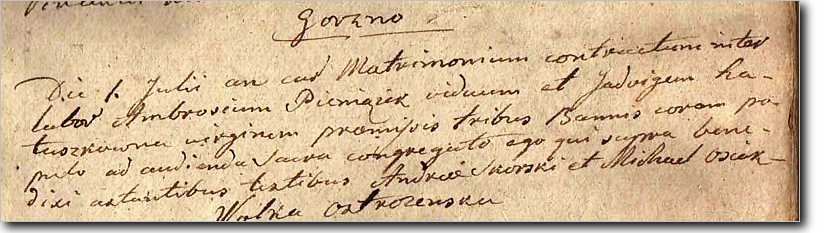 Gorzno
Die 1. Julii an cur Matrimonium contractum inter
labor Ambrosium Pieniązek viduum et Jadvigem Ka-
tuszkowna virginem præmissis tribus Bannis coram po
pulo ad audienda Sacra congregato ego qui supra bene-
dixi astantibus testibus Andreæ Skorski et Michael Osiek-
Wolka Ostrozenska